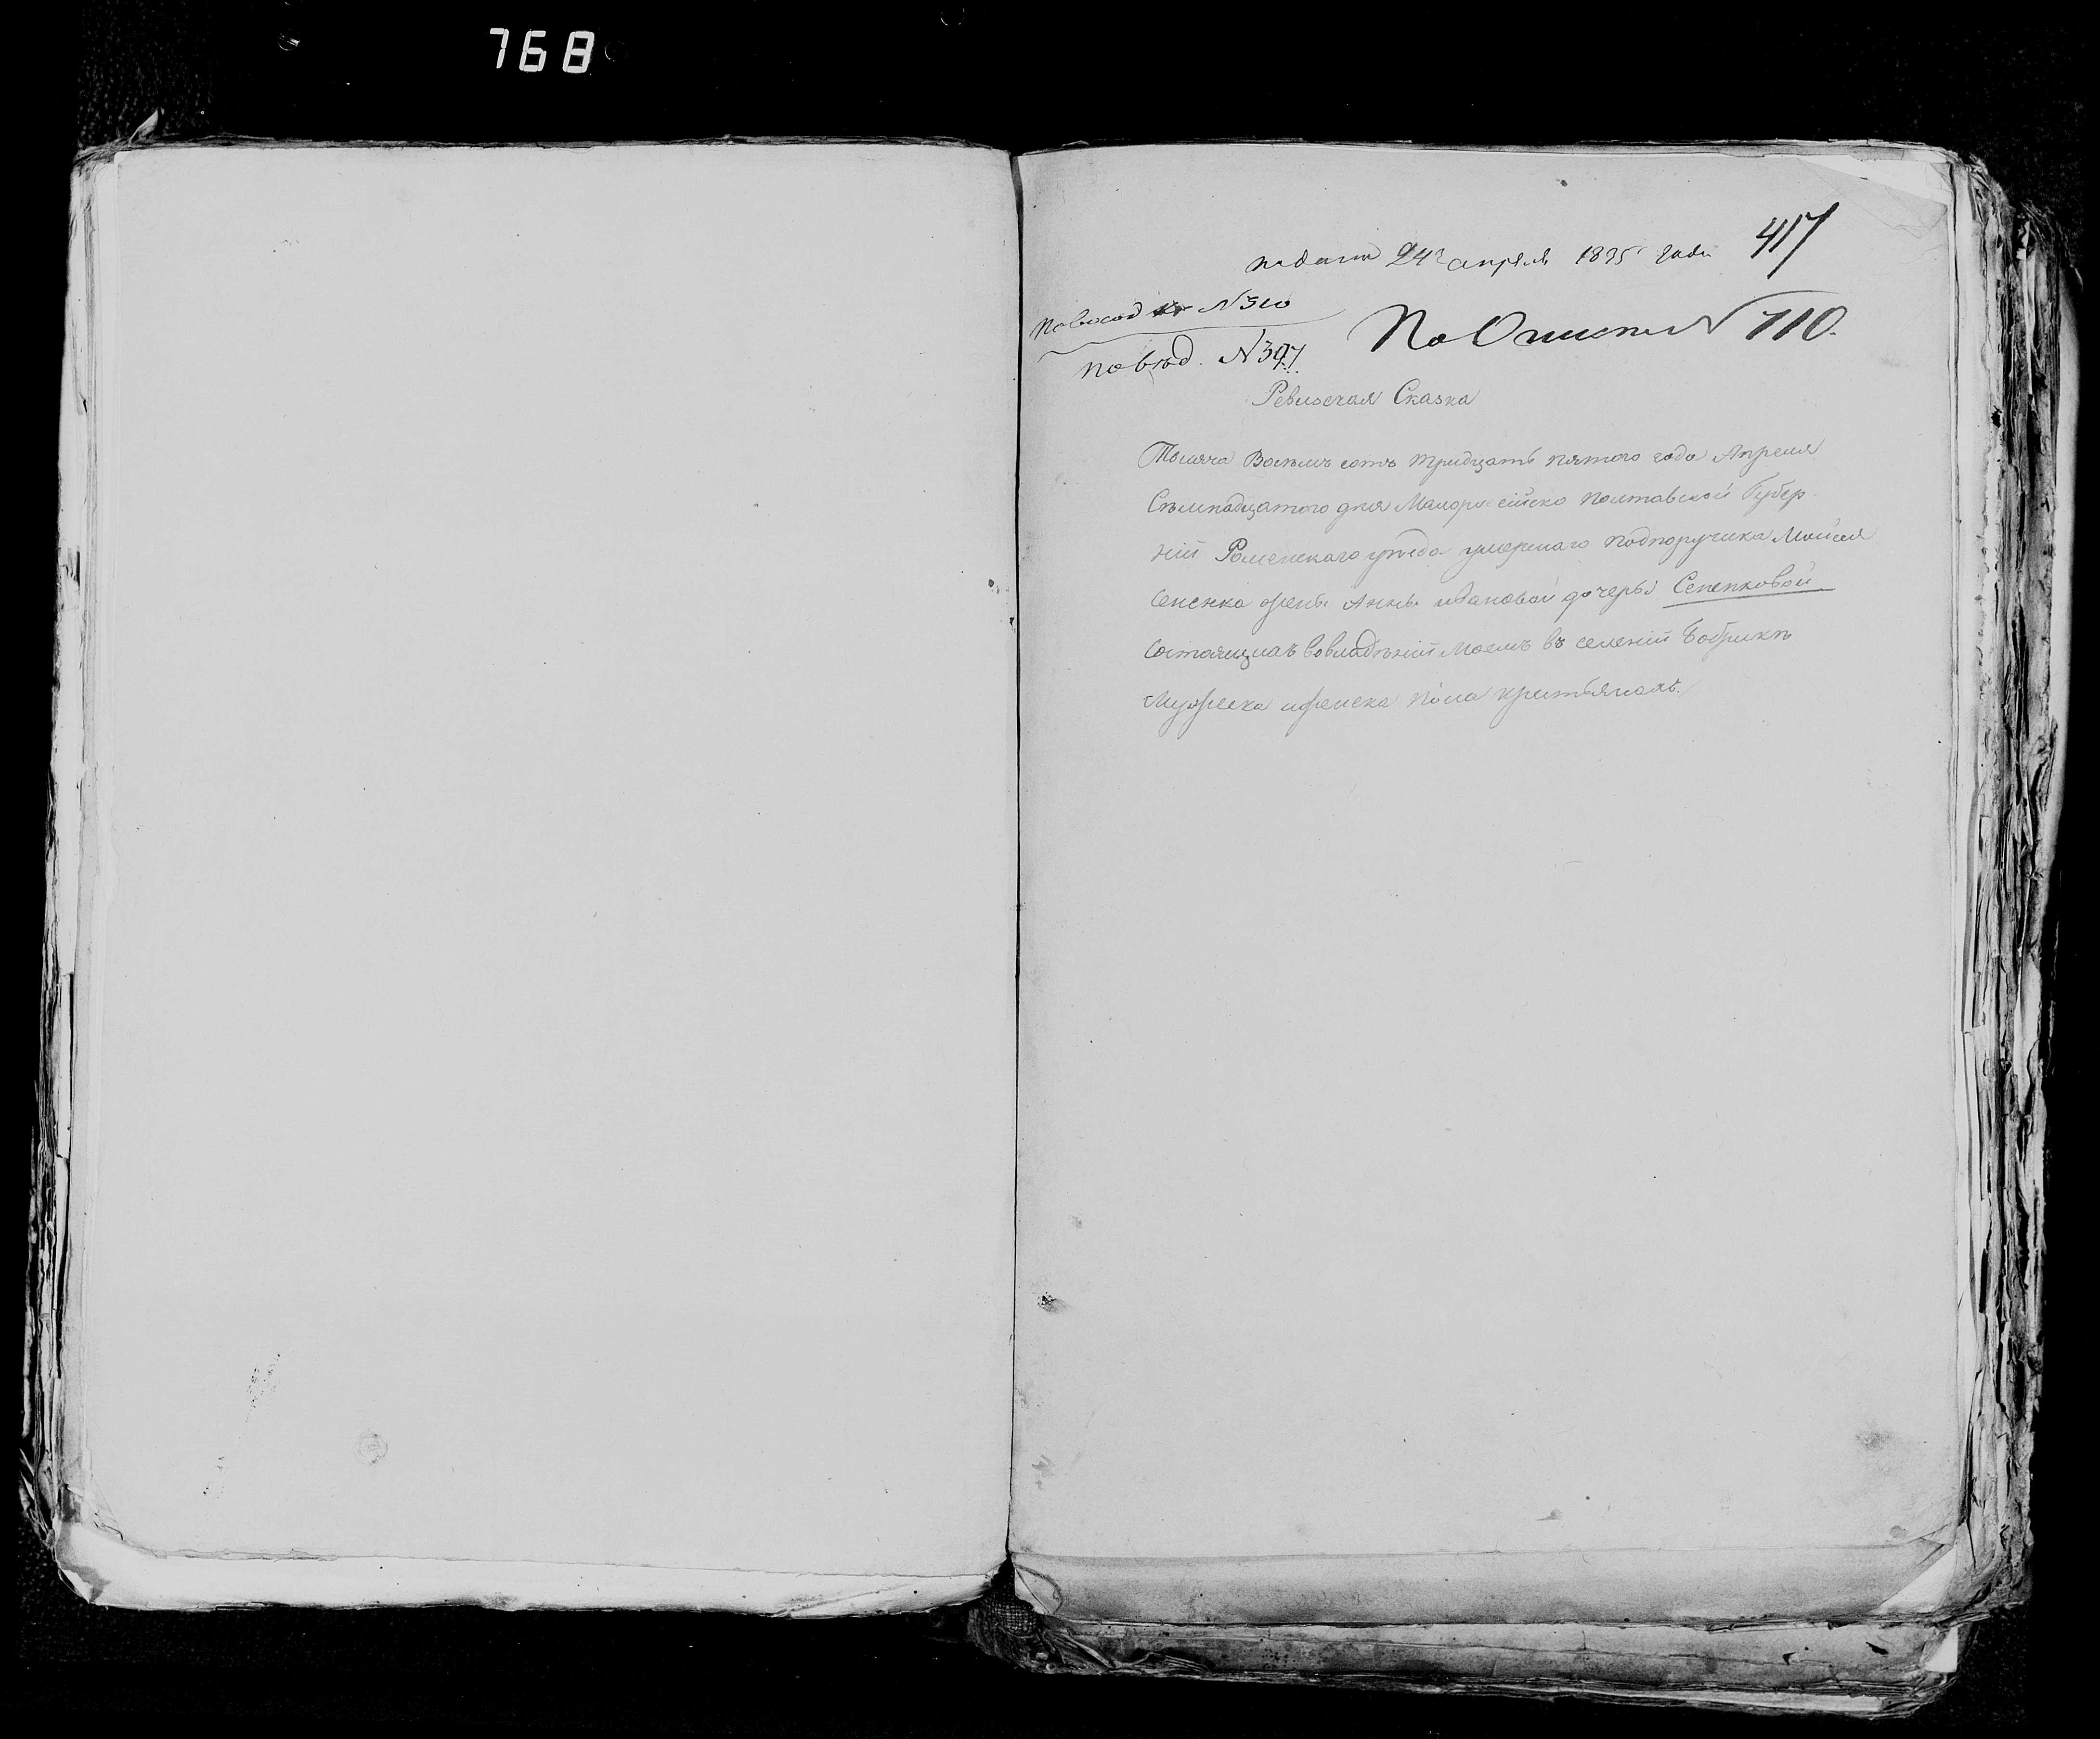 768
417
подана 24го апреля 1835 года
По Описи № 710.
№ 310
По вед. № 397.
Ревизская Сказка
Тысяча Восемь сотъ тридцать пятого года Апреля
Семнадцатого дня Малороссійско Полтавской Губер
ніи Роменскаго уезда умершаго Подпоручика Моисея
Сененка жены Анны Ивановой дочеры Сененковой
Состоящихъ во владеніи Моемъ въ селеніи Бобрике
Мужеска и женска пола крестьянахъ.